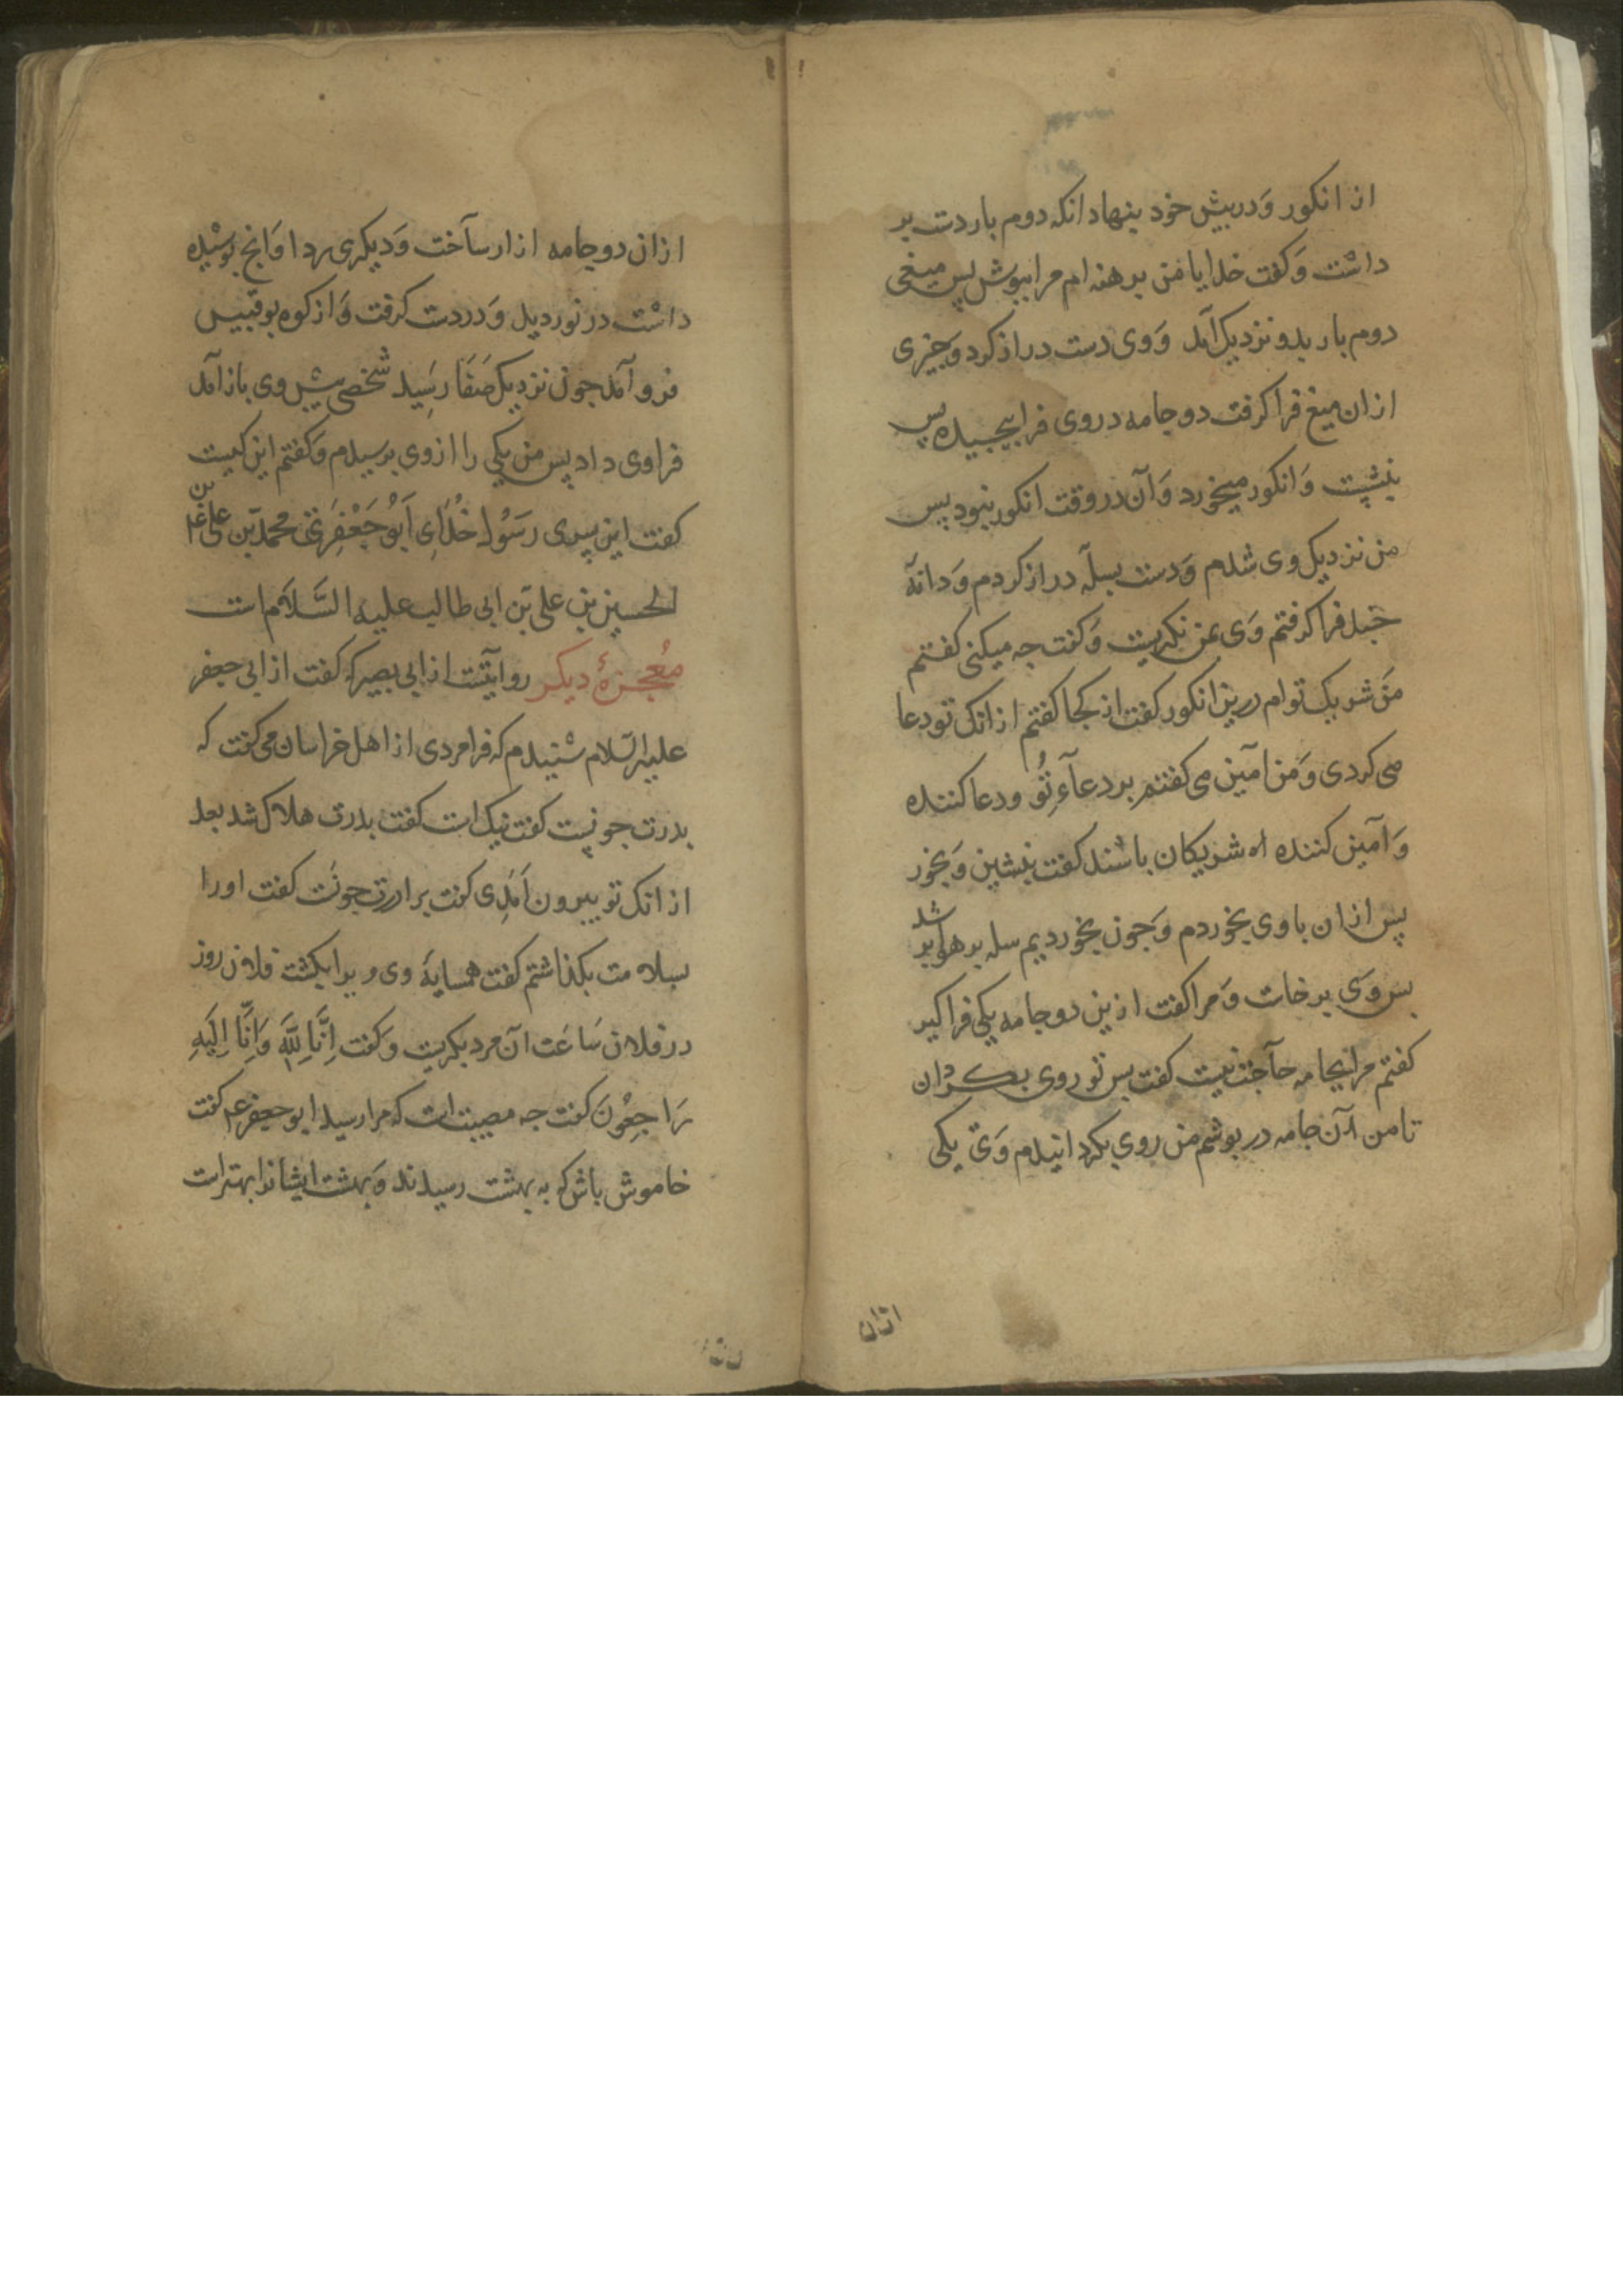 از انکور وَدربیش خود بنهاد انکه دوم بار دست بر
داشت وَکفت خدایا من برهنه ام مرا ببوش پس میغی
دوم بار بدو نزدیک آمد وَوی دست دراز کرد وَجیزی
ازان میغ فرا کرفت دو جامه دروی فرا بیجیده بس
بنشست وَانکور میخورد وَآن در وقت انکور نبود بس
من نزدیک وی شدم وَدست بسلّه دراز کردم وَدانهٔ
جند فرا کرفتم وَی بمن نکریست وَکفت جه میکنی کفتم
مَن شریک توام درین انکور کفت از کجا کفتم ازانک تو دعا
می کردی وَمن امین می کفتم بر دعآءِ تُو ودعا کننده
وَآمین کننده شریکان باشند کفت بنشین وَبخور
بس ازان باوی بخوردم وَجون بخوردیم سله بر هوا بر شد
بس وَی برخاست وَمرا کفت ازین دو جامه یکی فرا کیر
کفتم مرا بجامه حآجت نیست کفت بس تو روی بکردان
تا من آن جامه در بوشم من روی بکردانیدم وَی یکی
ازان
ازان دو جامه ازار سآخت وَدیکری ردا وَانج بوشیده
داشت در نوردید وَدر دست کرفت وَاز کوه بوقبیس
فرو آمد جون نزدیک صَفَا رسِید شخصی بیش وی باز آمد
فراوی داد بس من یکی را ازوی برسیدم وَکفتم این کیست
کفت این بسری رَسُول خُدَای اَبُو جَعْفَر محمد بن علی بن
الحسین بن علی بن ابی طالب علیه السَّلَام است
مُعجزهٔ دیکر روایتست از ابی بصیر که کفت از ابی جعفر
علیه السّلام شنیدم که فرا مردی از اهل خراسان می کفت که
بدرت جونست کفت نیک است کفت بدرت هلاک شد بعد
ازانک تو بیرون اَمَدی کفت برادرت جونَست کفت اورا
بسلامت بکذاشتم کفت همسایهٔ وی ویرا بکشت فلان روز
در فلان سَاعَت آن مرد بکریست وَکفت اِنَّا لِلّٰهِ وَاِنَّا اِلَیهِ
رَاجِعُونَ کفت جه مصیبت است که مرا رسید ابو جعفر ع م کفت
خاموش باش که به بهشت رسیدند وَبهشت ایشانرا بهتر است